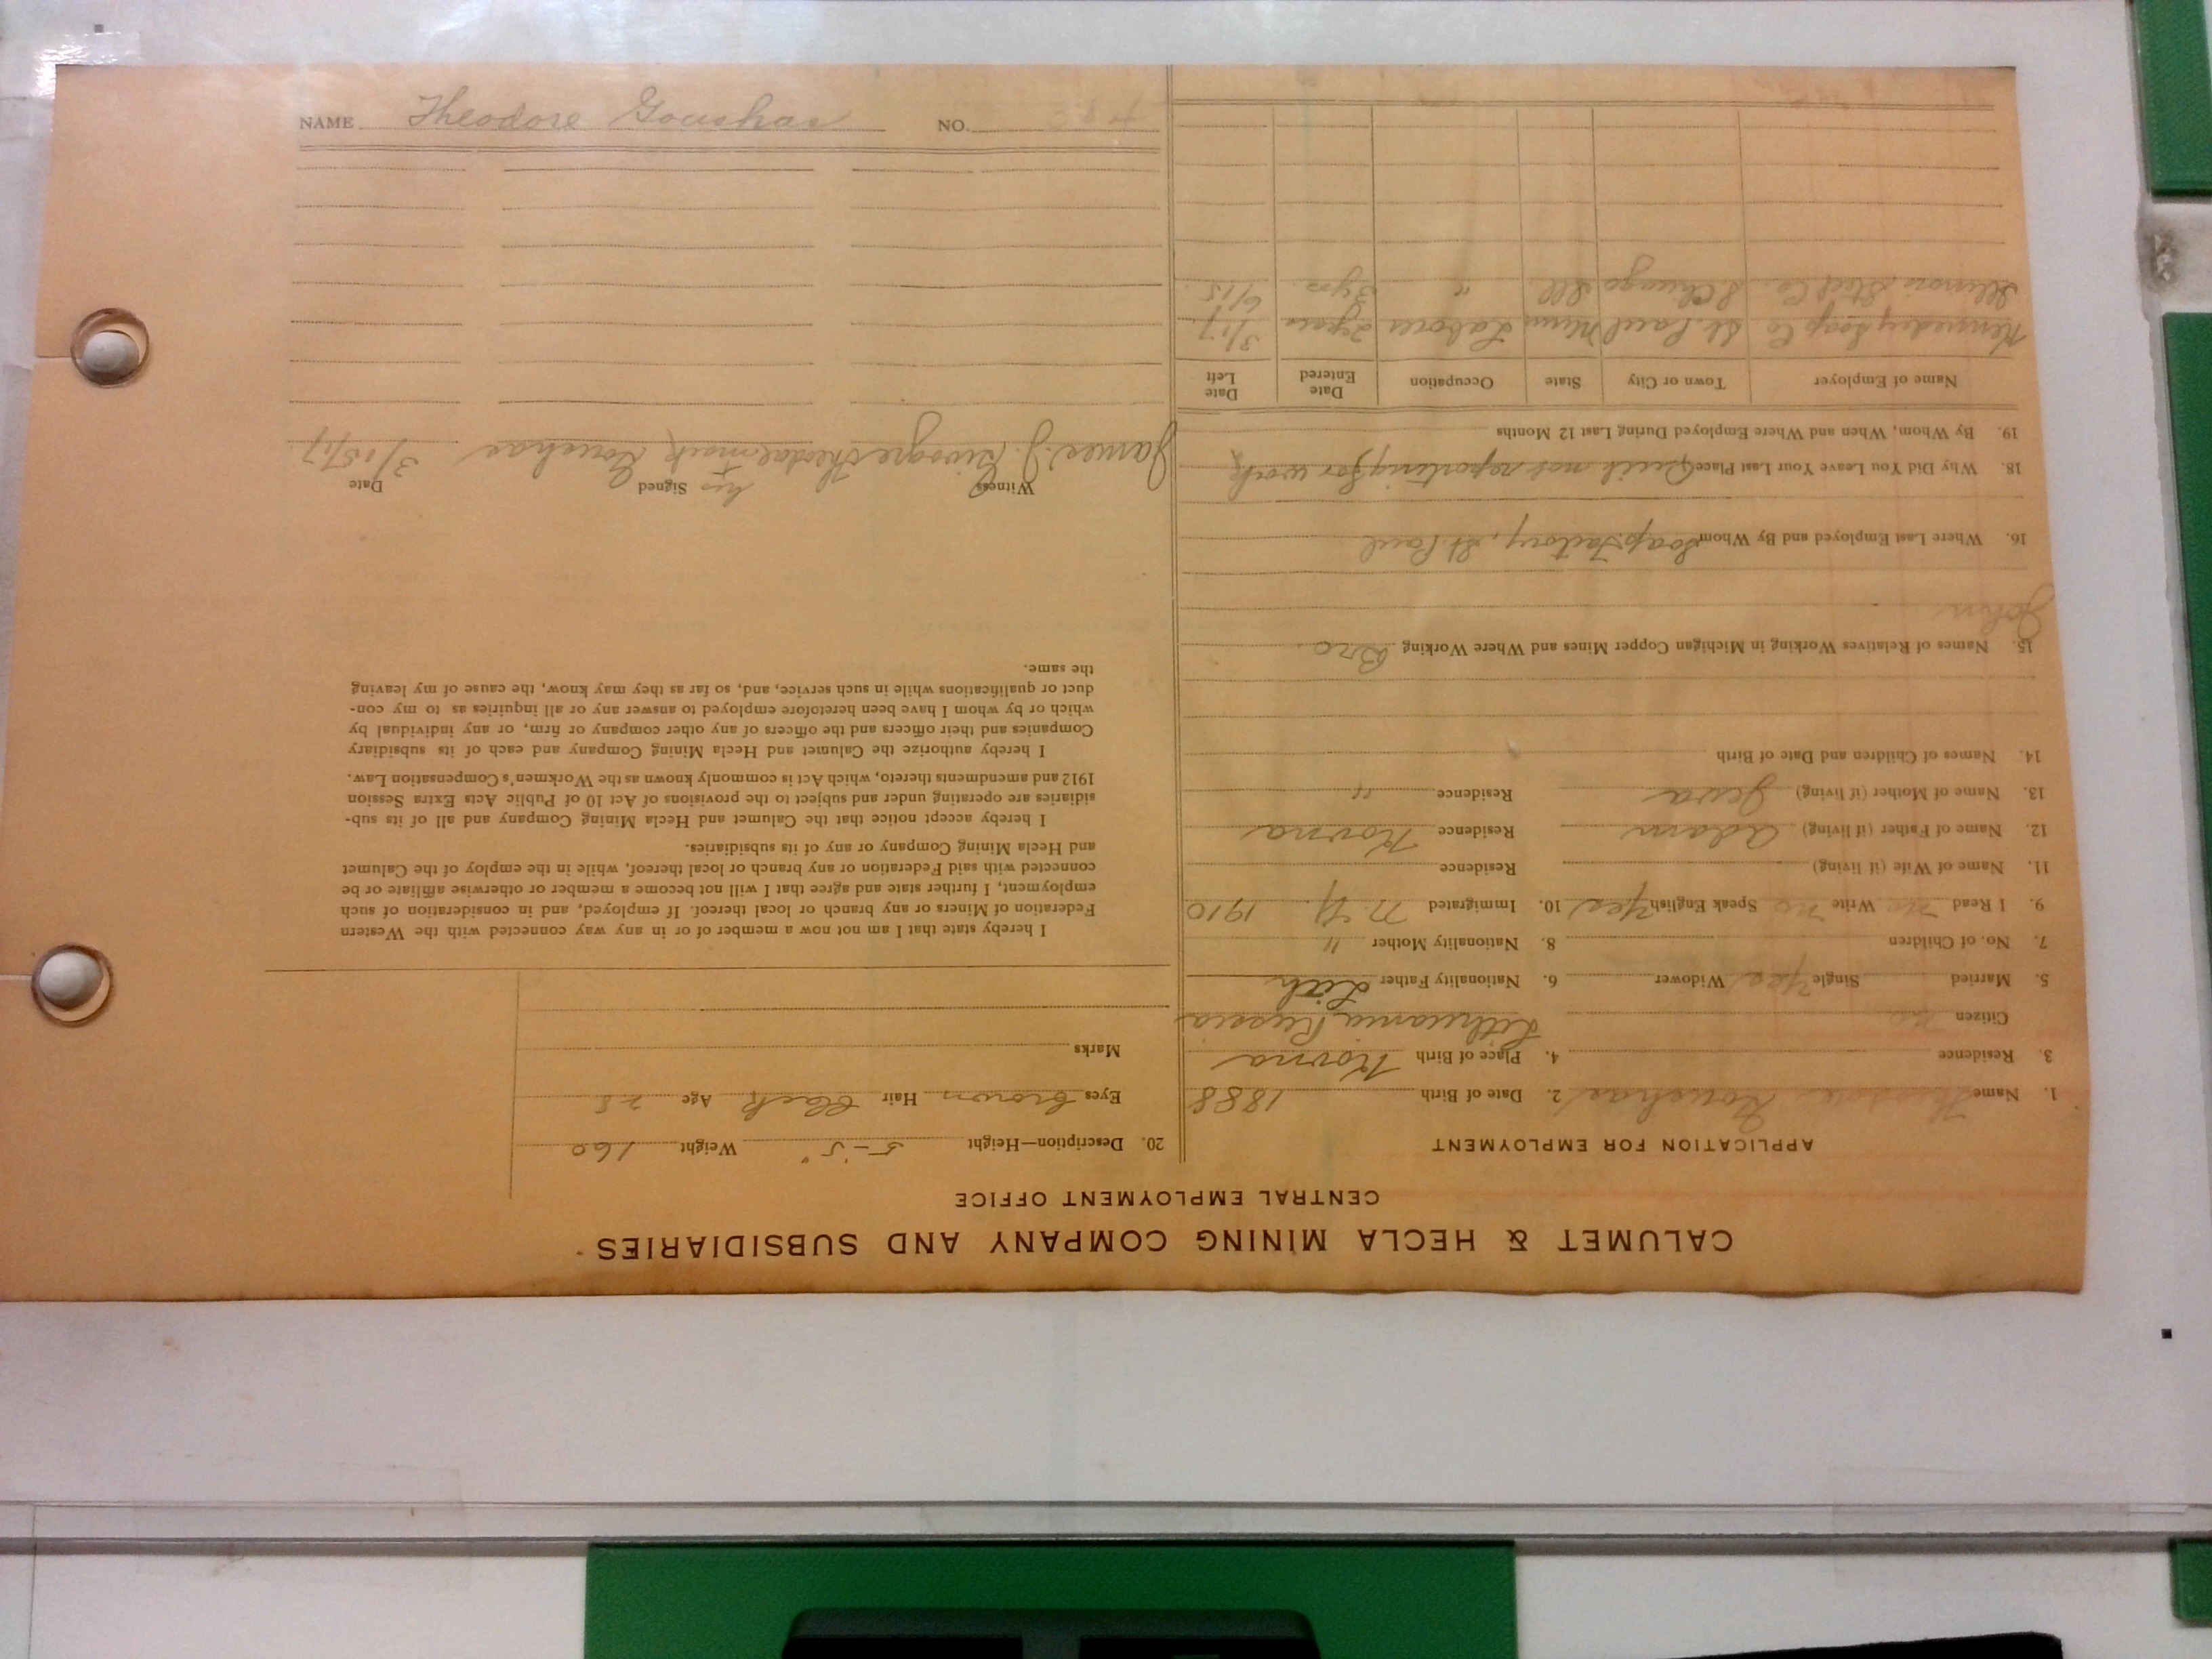 CALUMET & HECLA MINING COMPANY AND SUBSIDIARIES
CENTRAL EMPLOYMENT OFFICE
APPLICATION FOR EMPLOYMENT
1. Name Theodore Goushas 2. Date of Birth 1888
3. Residence 4. Place of Birth Kovna
Citizen no Lithuania Russia
5. Married Single Yes Widower 6. Nationality Father Lith
7. No. of Children 8. Nationality Mother "
9. I Read no Write no Speak English Yes 10. Immigrated N.Y. 1910
11. Name of Wife (if living) Residence
12. Name of Father (if living) Adam Residence Kovna
13. Name of Mother (if living) Residence "
14. Names of Children and Date of Birth
15. Names of Relatives Working in Michigan Copper Mines and Where Working Bro.
John
16. Where Last Employed and By Whom Soap Factory, St. Paul
18. Why Did You Leave Your Last Place Quit not reporting for work
19. By Whom, When and Where Employed During Last 12 Months
Name of Employer Town or City State Occupation Date Entered Date Left
Kennedy Soap Co St. Paul Minn Laborer 2 years 3/17
Illinois Steel Co. S Chicago Ill. " 3 yrs. 6/15
20. Description—Height 5-5" Weight 160
Eyes brown Hair black Age 28
Marks
I hereby state that I am not now a member of or in any way connected with the Western
Federation of Miners or any branch or local thereof. If employed, and in consideration of such
employment, I further state and agree that I will not become a member or otherwise affiliate or be
connected with said Federation or any branch or local thereof, while in the employ of the Calumet
and Hecla Mining Company or any of its subsidiaries.
I hereby accept notice that the Calumet and Hecla Mining Company and all of its sub-
sidiaries are operating under and subject to the provisions of Act 10 of Public Acts Extra Session
1912 and amendments thereto, which Act is commonly known as the Workmen's Compensation Law.
I hereby authorize the Calumet and Hecla Mining Company and each of its subsidiary
Companies and their officers and the officers of any other company or firm, or any individual by
which or by whom I have been heretofore employed to answer any or all inquiries as to my con-
duct or qualifications while in such service, and, so far as they may know, the cause of my leaving
the same.
Witness Signed Date
his
James J. Theodal mark Goushas 3/15/17
NAME Theodore Goushas NO.